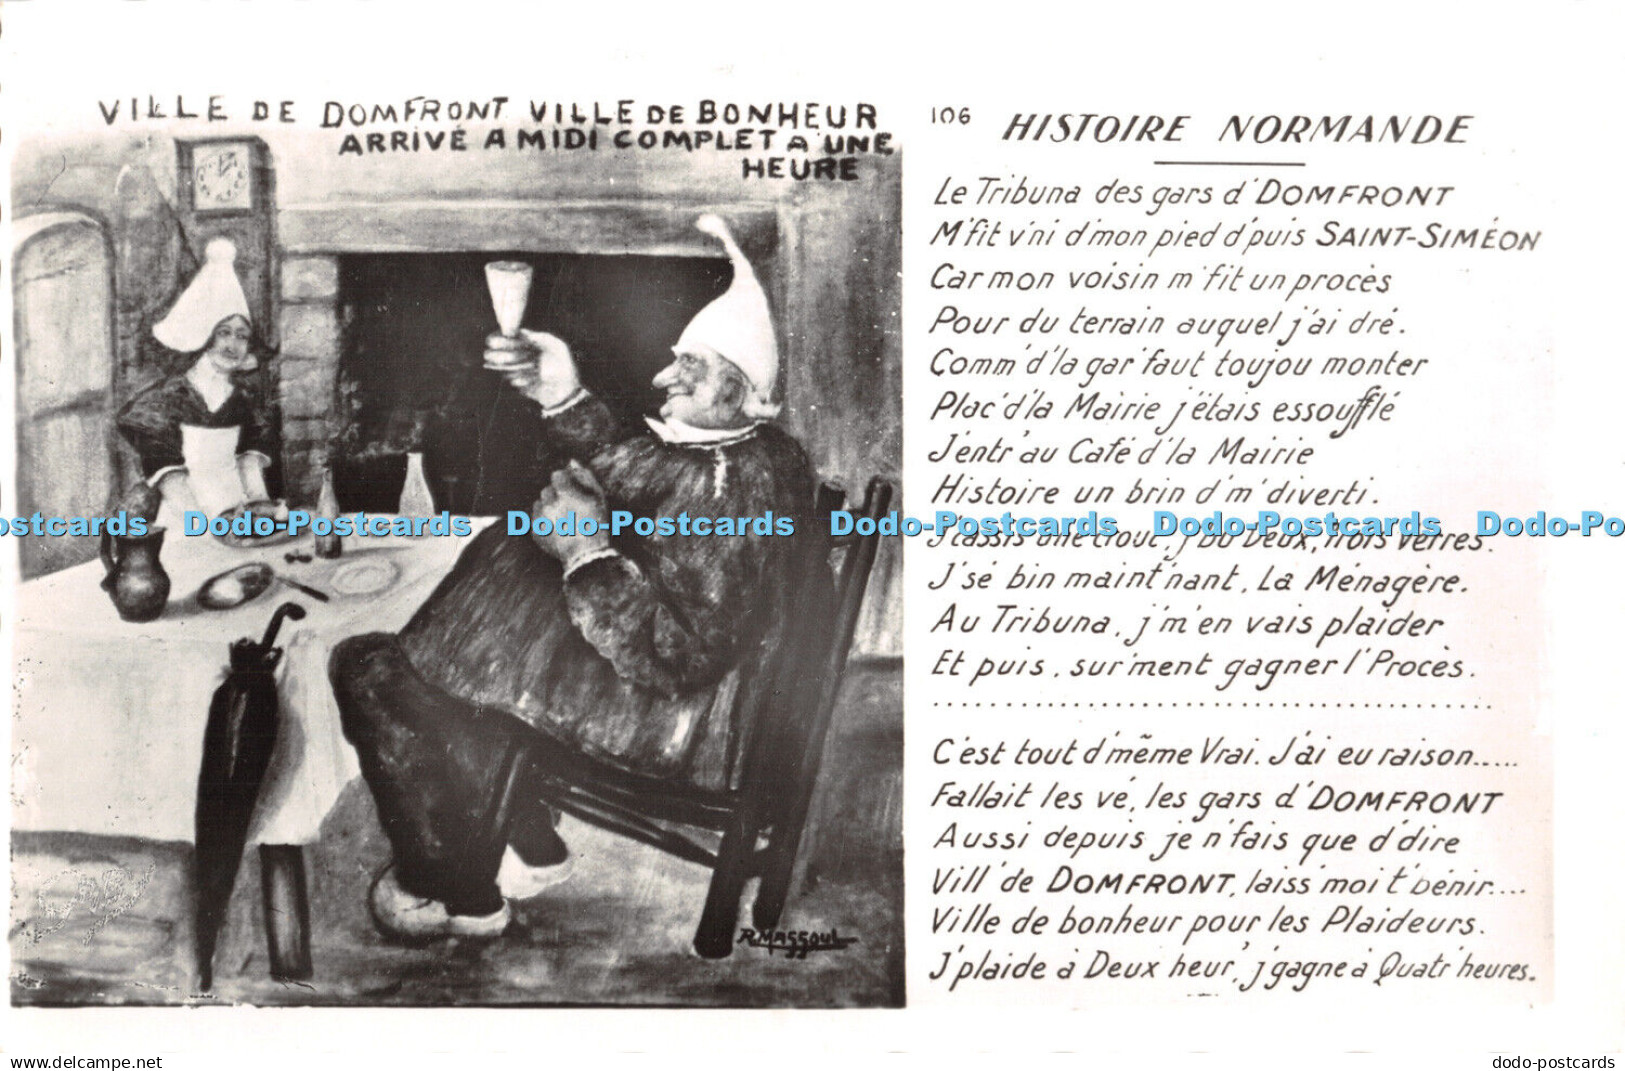 VILLE DE DOMFRONT VILLE DE BONHEUR
ARRIVÉ A MIDI COMPLET A UNE
HEURE
R. MASSOUL
106
HISTOIRE NORMANDE
Le Tribuna des gars d'DOMFRONT
M'fit v'ni d'mon pied d'puis SAINT-SIMÉON
Car mon voisin m'fit un procès
Pour du terrain auquel j'ai dré.
Comm'd'la gar'faut toujou monter
Plac'd'la Mairie j'étais essoufflé
J'entr'au Café d'la Mairie
Histoire un brin d'm'diverti.
J'cassis une crout, j'bu Deux, trois verres.
J'sé bin maint'nant, La Ménagère.
Au Tribuna, j'm'en vais plaider
Et puis, sur'ment gagner l'Procès.
........................................
C'est tout d'même Vrai. J'ai eu raison.....
Fallait les vé, les gars d'DOMFRONT
Aussi depuis je n'fais que d'dire
Vill'de DOMFRONT, laiss'moi t'bénir....
Ville de bonheur pour les Plaideurs.
J'plaide à Deux heur', j'gagne à Quatr'heures.
ostcards Dodo-Postcards Dodo-Postcards Dodo-Postcards Dodo-Postcards Dodo-Po
www.delcampe.net
dodo-postcards